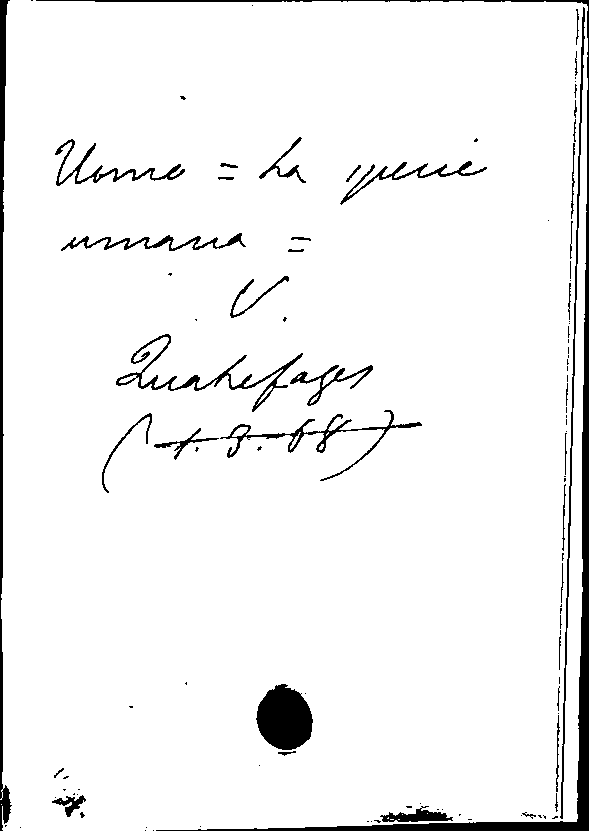 Uomo = La specie
umana =
V.
Quatrefages
(1.3.68)